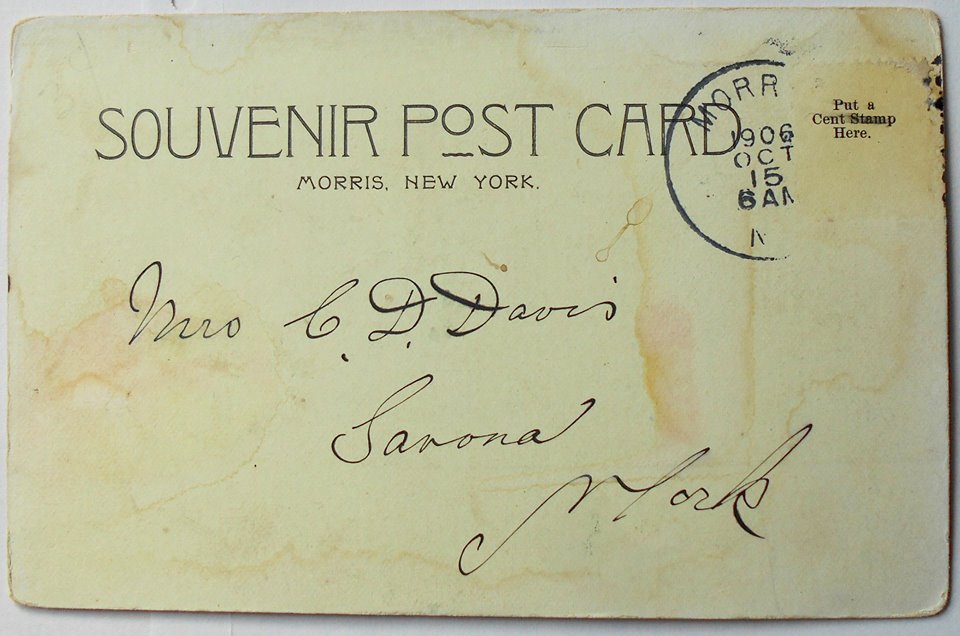 SOUVENIR POST CARD
MORRIS, NEW YORK.
MORR
1906
OCT
15
6AM
N
Put a
Cent Stamp
Here.
Mrs C. D. Davis
Savona
N York